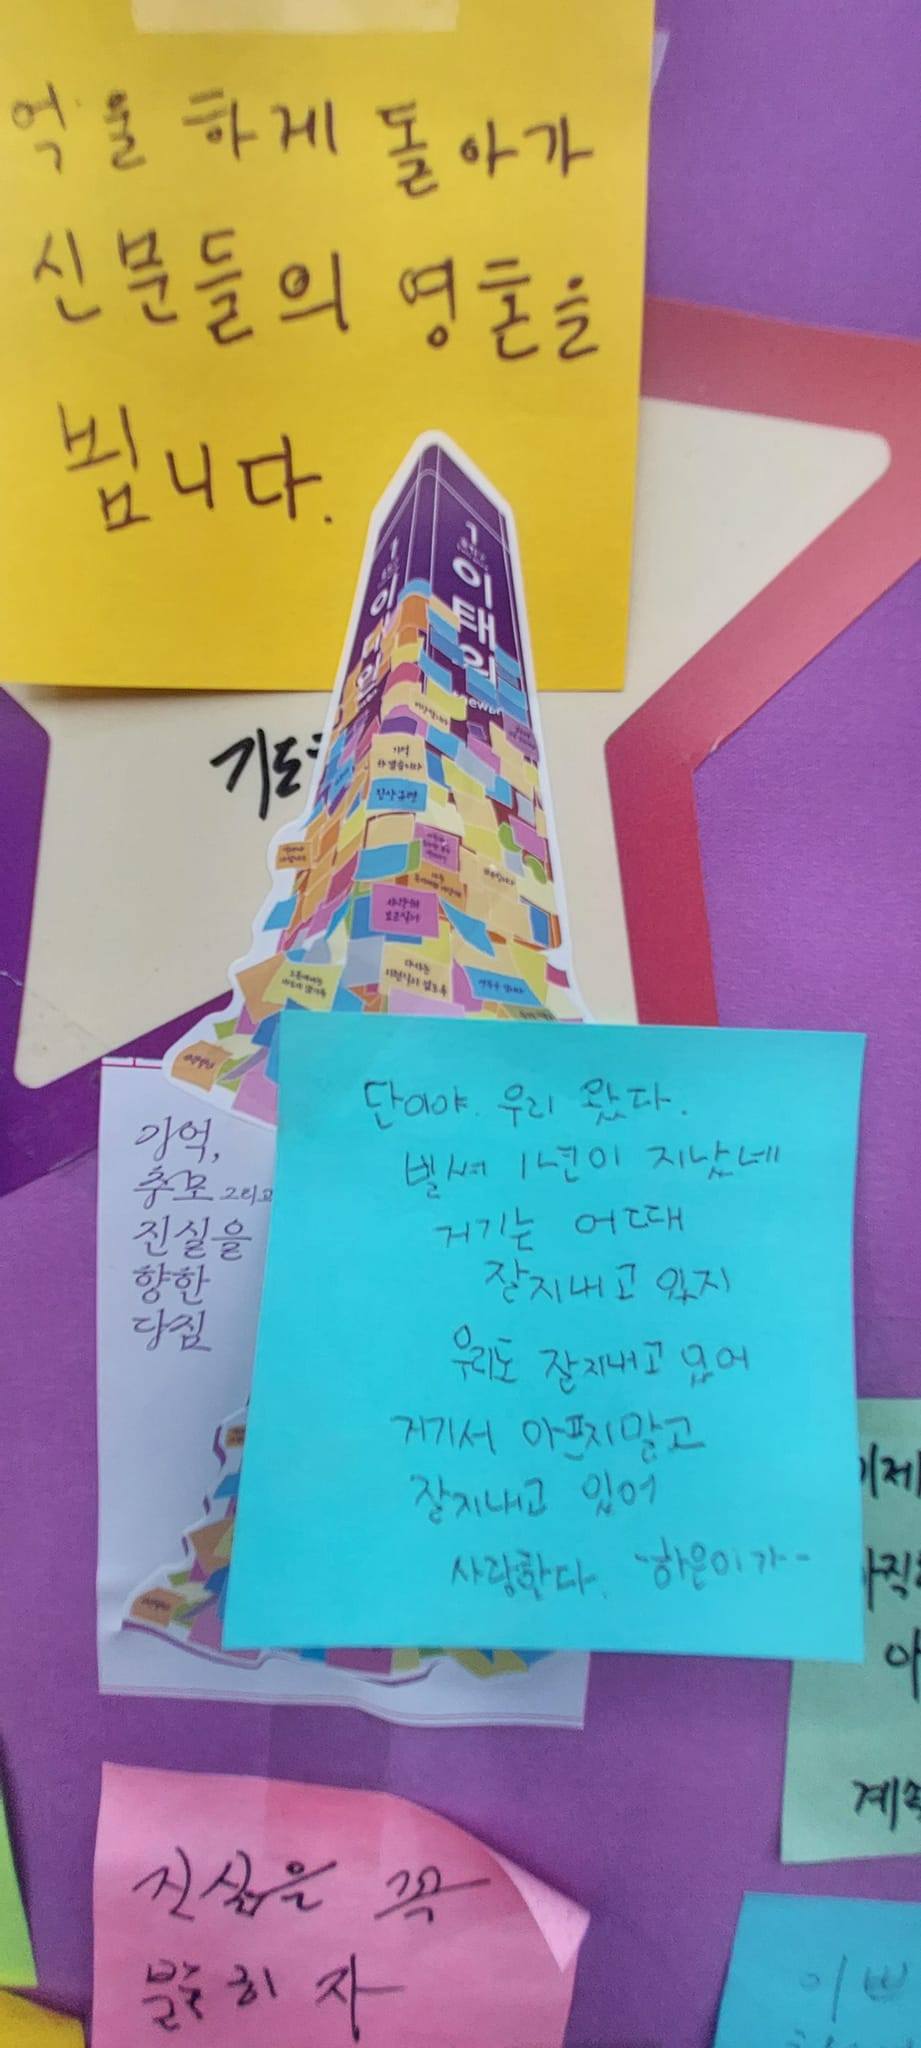 억울하게 돌아가
신분들의 영혼을
빕니다.
1
이태원
기도
기억
하겠습니다
진상규명
단이야. 우리 왔다.
벌써 1년이 지났네
거기는 어때
잘지내고 있지
우리도 잘지내고 있어
거기서 아프지말고
잘지내고 있어
사랑한다. -하은이가-
기억,
추모 그리고
진실을
향한
당짐
이제
아직
아
계속
진실을 꼭
밝히자
이쁘